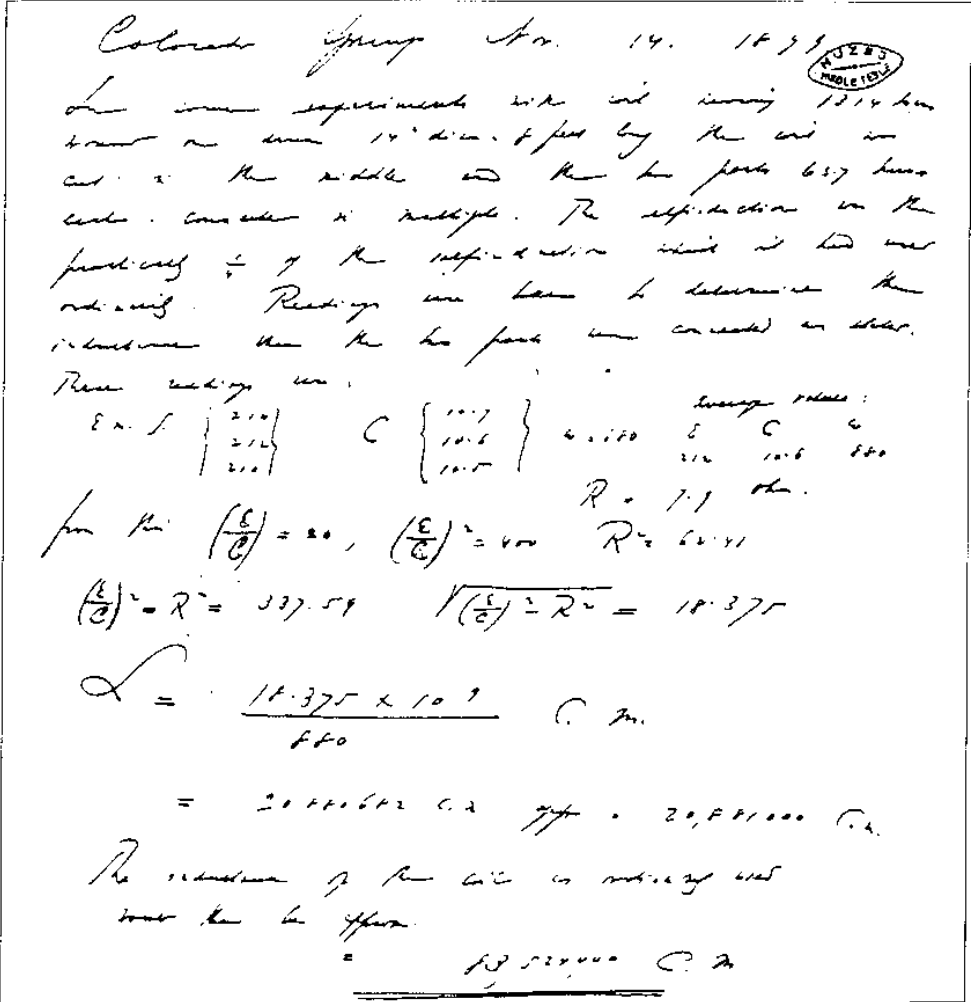 Colorado Springs Nov. 14. 1899
MUZEJ
NIKOLE TESLE
In some experiments with coil having 1314 turns
wound on drum 14" diam. 8 feet long the coil was
cut in the middle and the two parts 657 turns
each connected in multiple. The selfinduction was then
practically 1/4 of the selfinduction which it had used
ordinarily. Readings were taken to determine the
inductance when the two parts were connected as stated.
These readings were:
E.M.F. { 214 212 210 } C { 10.7 10.6 10.5 } ω = 880 Average values: E C ω 212 10.6 880
R = 7.9 ohm.
from this (E/C) = 20, (E/C)² = 400 R² = 62.41
(E/C)² - R² = 337.59 √(E/C)² - R² = 18.375
L = 18.375 x 10⁹ / 880 C.m.
= 20880682 C.m. appr. = 20,881000 C.m.
The inductance of the coil as ordinarily used
would then be approx.
= 83,524,000 C.m